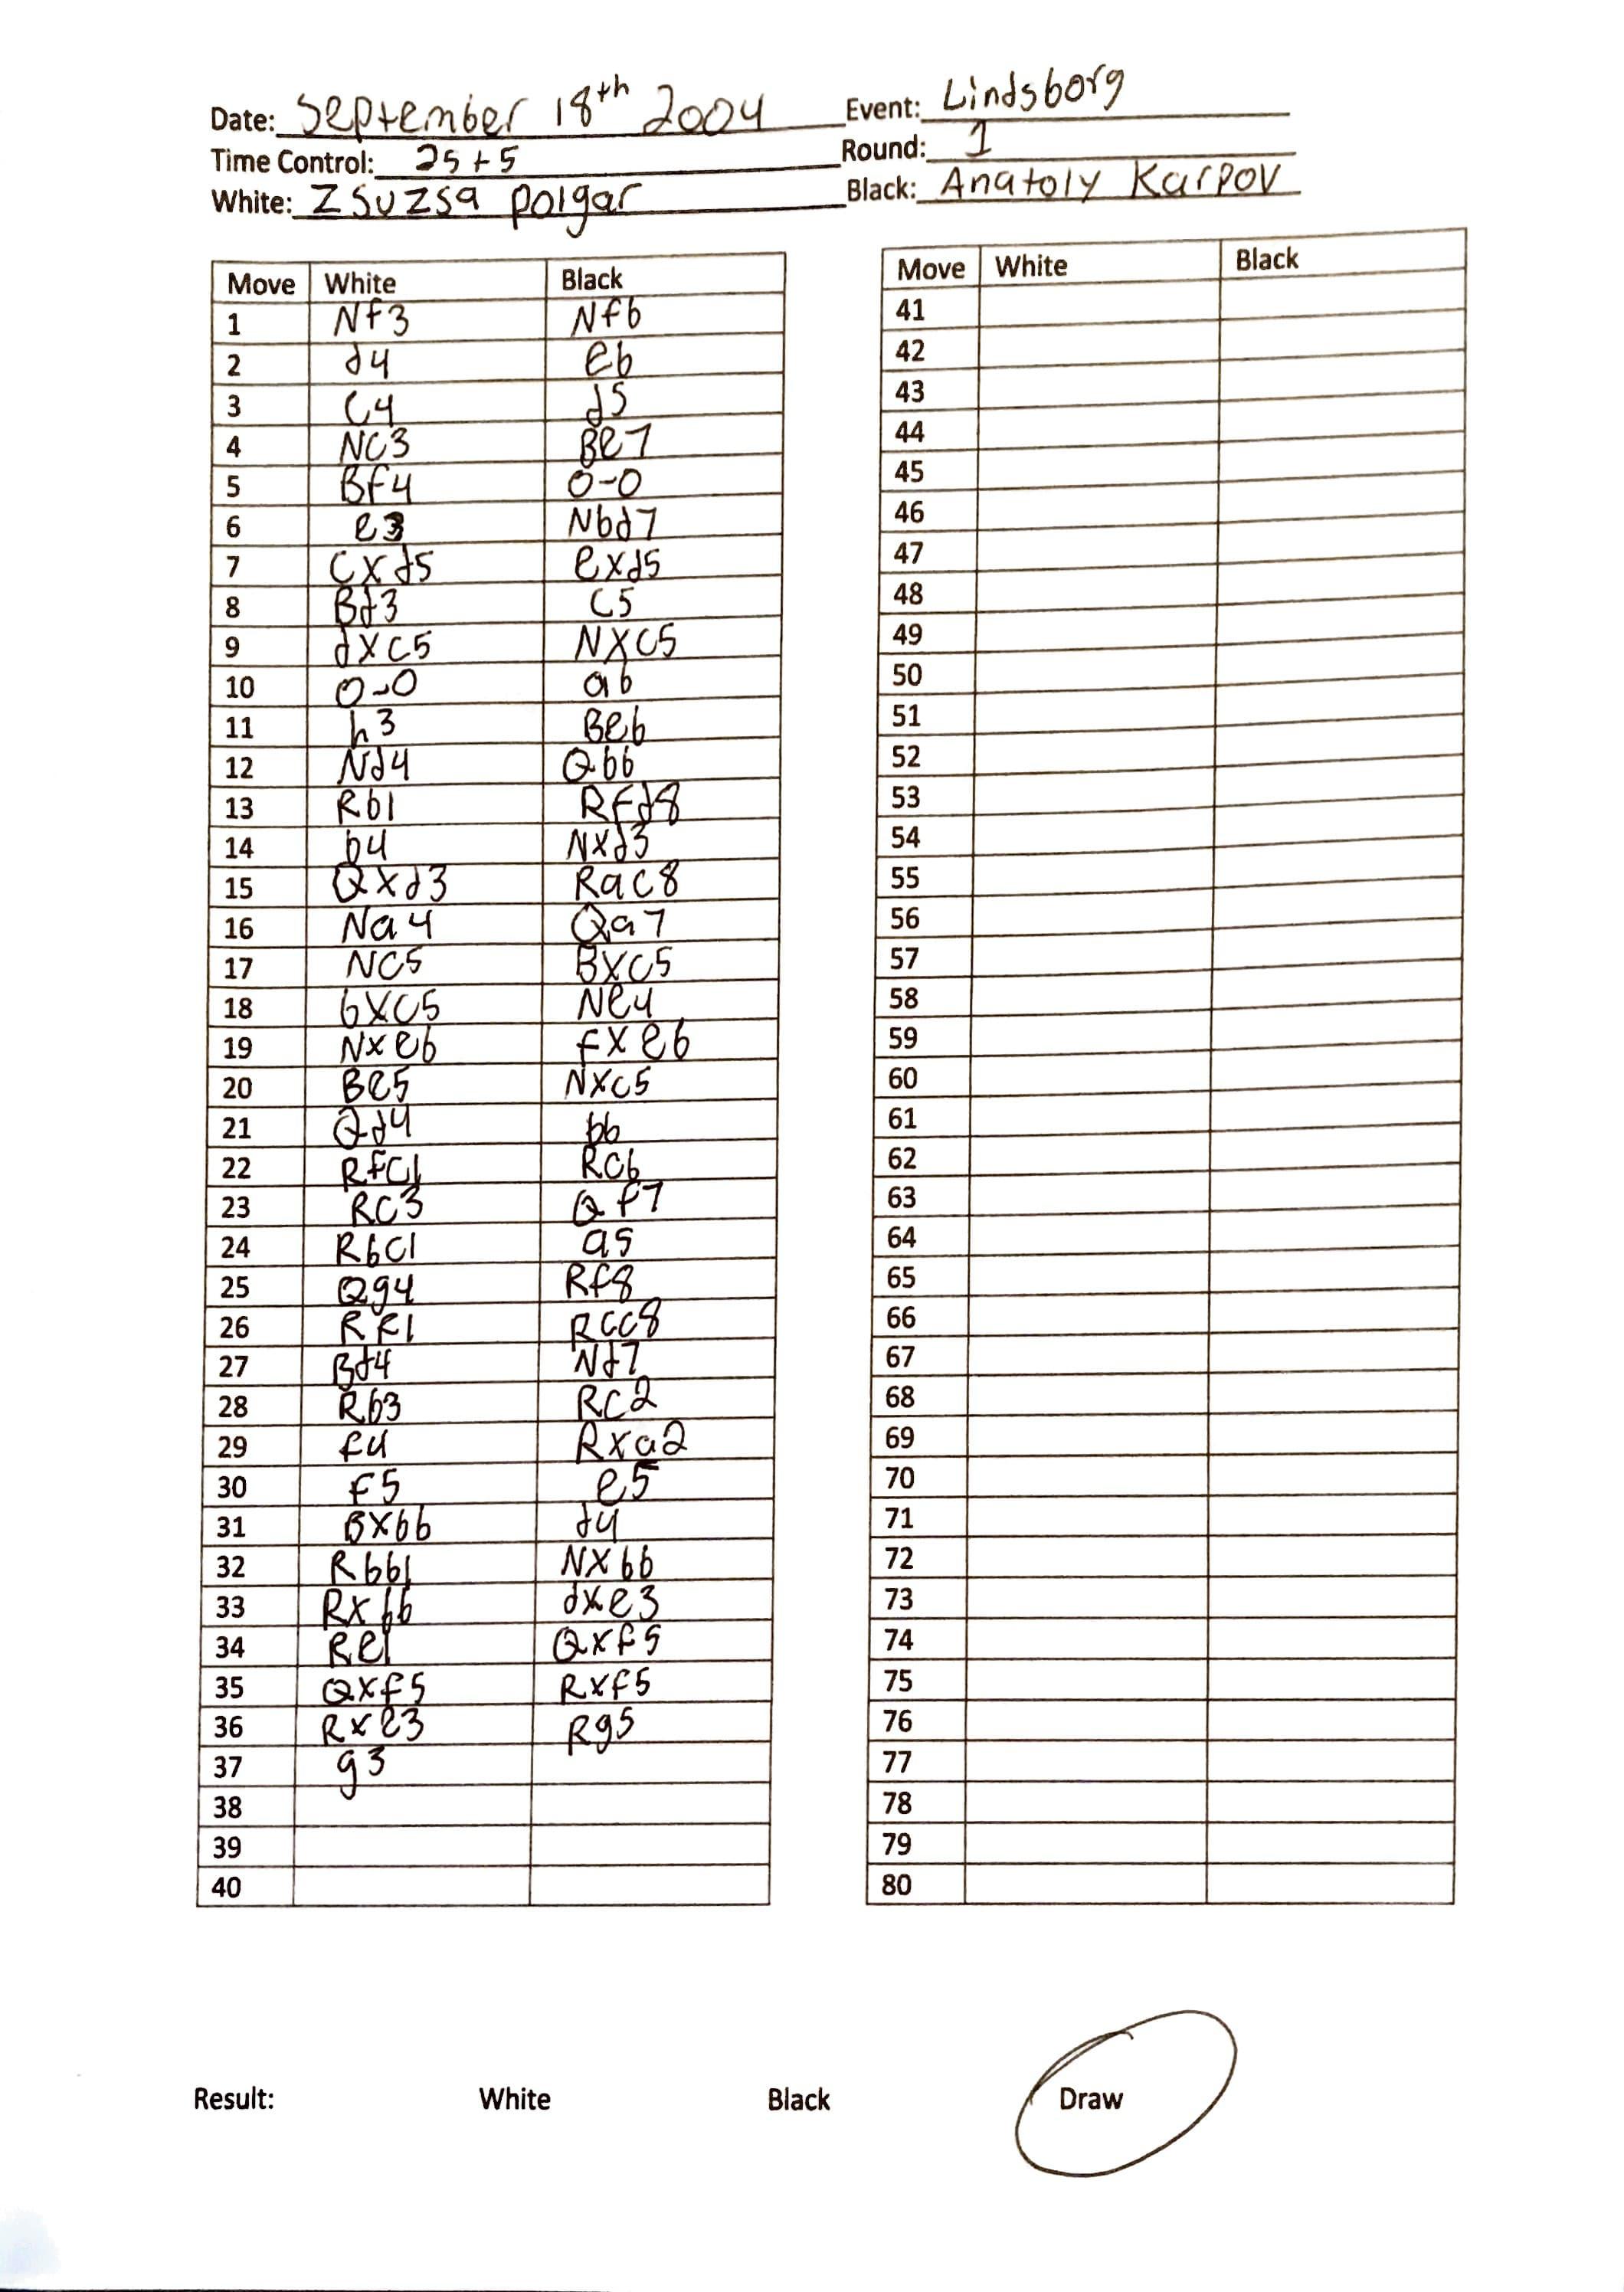 Date: September 18th 2004 Event: Lindsborg
Time Control: 25+5 Round: 1
White: Zsuzsa Polgar Black: Anatoly Karpov
Move White Black
1 Nf3 Nf6
2 d4 e6
3 c4 d5
4 Nc3 Be7
5 Bf4 0-0
6 e3 Nbd7
7 cxd5 exd5
8 Bd3 c5
9 dxc5 Nxc5
10 0-0 a6
11 h3 Be6
12 Nd4 Qb6
13 Rb1 Rfd8
14 b4 Nxd3
15 Qxd3 Rac8
16 Na4 Qa7
17 Nc5 Bxc5
18 bxc5 Ne4
19 Nxe6 fxe6
20 Be5 Nxc5
21 Qd4 b6
22 Rfc1 Rc6
23 Rc3 Qf7
24 Rbc1 a5
25 Qg4 Rf8
26 Rf1 Rcc8
27 Bd4 Nd7
28 Rb3 Rc2
29 f4 Rxa2
30 f5 e5
31 Bxb6 d4
32 Rbb1 Nxb6
33 Rxb6 dxe3
34 Re1 Qxf5
35 Qxf5 Rxf5
36 Rxe3 Rg5
37 g3
38
39
40
Move White Black
41
42
43
44
45
46
47
48
49
50
51
52
53
54
55
56
57
58
59
60
61
62
63
64
65
66
67
68
69
70
71
72
73
74
75
76
77
78
79
80
Result: White Black Draw